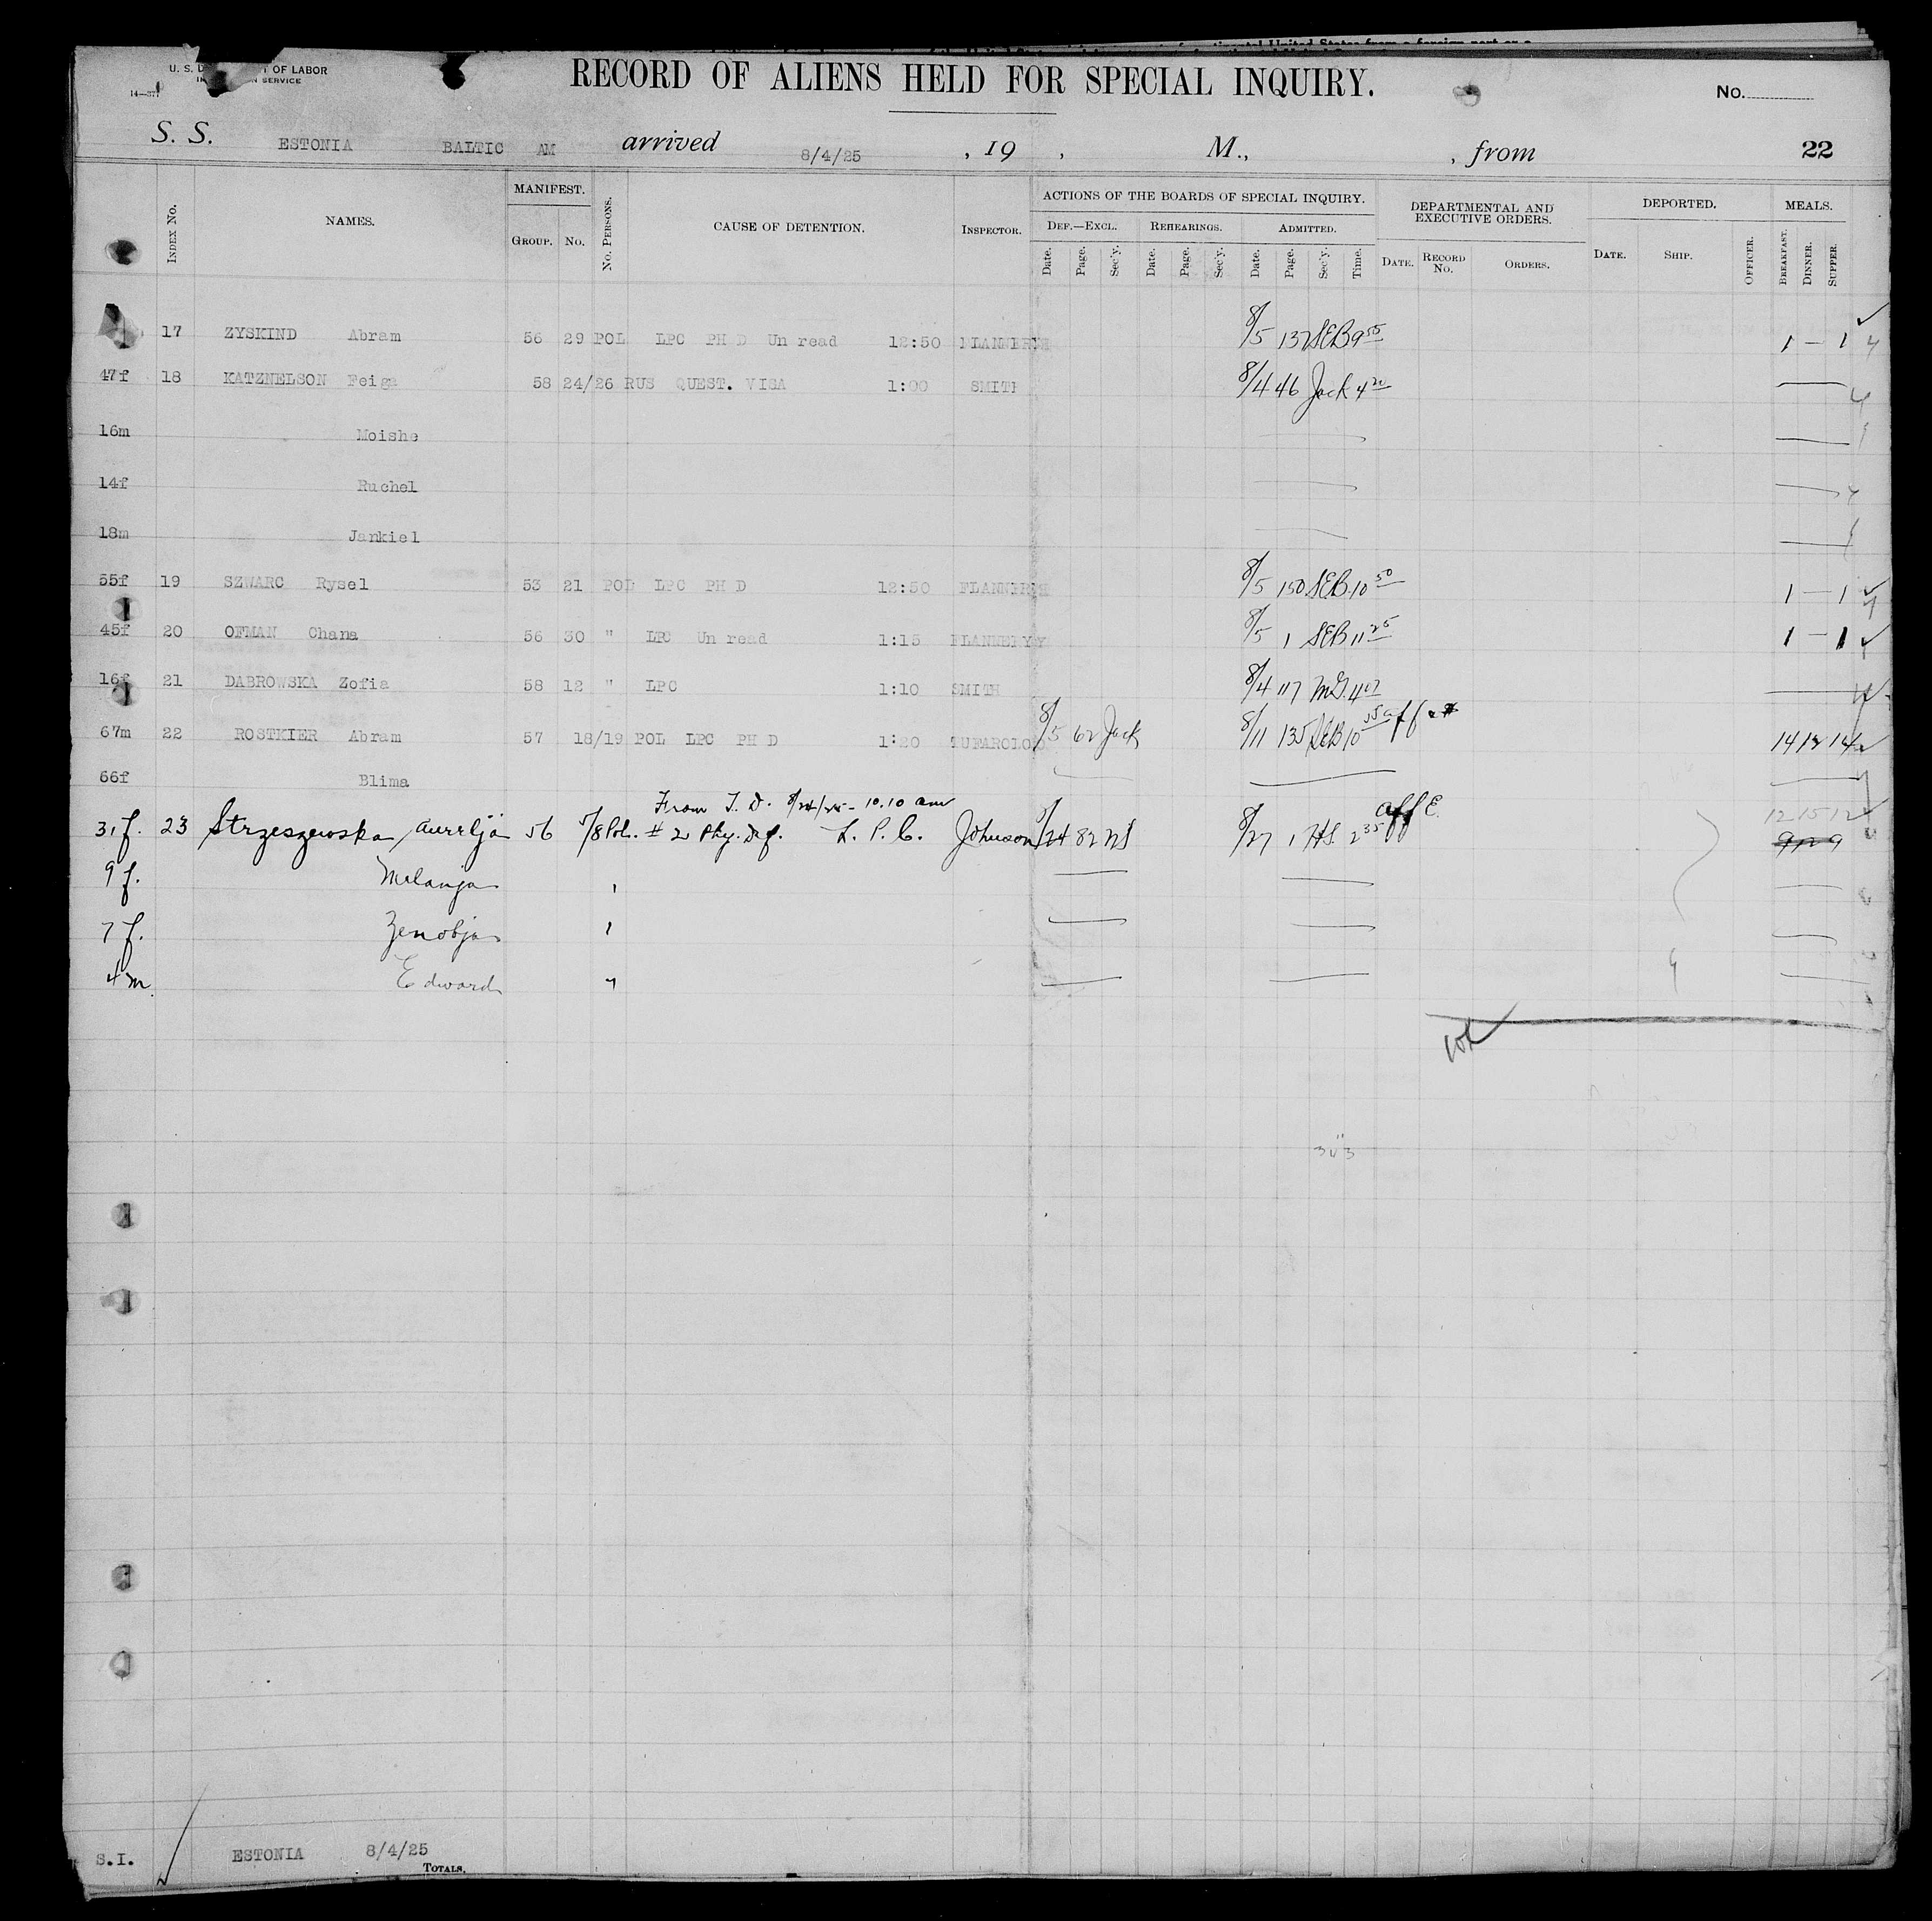 U. S. D T OF LABOR
N SERVICE
RECORD OF ALIENS HELD FOR SPECIAL INQUIRY.
No.
S. S. ESTONIA BALTIC AM arrived 8/4/25 , 19 , M., , from 22
INDEX No. NAMES. MANIFEST. GROUP. No. No. PERSONS. CAUSE OF DETENTION. INSPECTOR. ACTIONS OF THE BOARDS OF SPECIAL INQUIRY. DEPARTMENTAL AND EXECUTIVE ORDERS. DEPORTED. MEALS.
DEF.—EXCL. REHEARINGS. ADMITTED.
Date. Page. Sec'y. Date. Page. Sec'y. Date. Page. Sec'y. Time. DATE. RECORD No. ORDERS. DATE. SHIP. OFFICER. BREAKFAST. DINNER. SUPPER.
17 ZYSKIND Abram 56 29 POL LPC PH D Un read 12:50 8/5 137 SEB 9 55 1 — 1
47f 18 KATZNELSON Feiga 58 24/26 RUS QUEST. VISA 1:00 SMITH 8/4 46 Jack 4 20
16m Moishe
14f Ruchel
18m Jankiel
55f 19 SZWARC Rysel 53 21 POL LPC PH D 12:50 8/5 150 SEB 10 50 1 — 1
45f 20 OFMAN Chana 56 30 " LPC Un read 1:15 FLANNERY 8/5 1 SEB 11 25 1 — 1
16f 21 DABROWSKA Zofia 58 12 " LPC 1:10 SMITH 8/4 117 4 07
67m 22 ROSTKIER Abram 57 18/19 POL LPC PH D 1:20 8/5 62 Jack 8/11 135 SEB 10 55 aff 14 14
66f Blima
From T. D. 8/24/25 - 10.10 am
31 f. 23 Strzeszewska, Aurelja 56 5/8 Pol. # 2 Phy. Def. L. P. C. Johnson 8/24 82 8/27 1 HS. 2 35 aff E. 12 15 12
9 f. Melanja
7 f. Zenobja
4 m. Edward
S.I. ESTONIA 8/4/25
TOTALS.